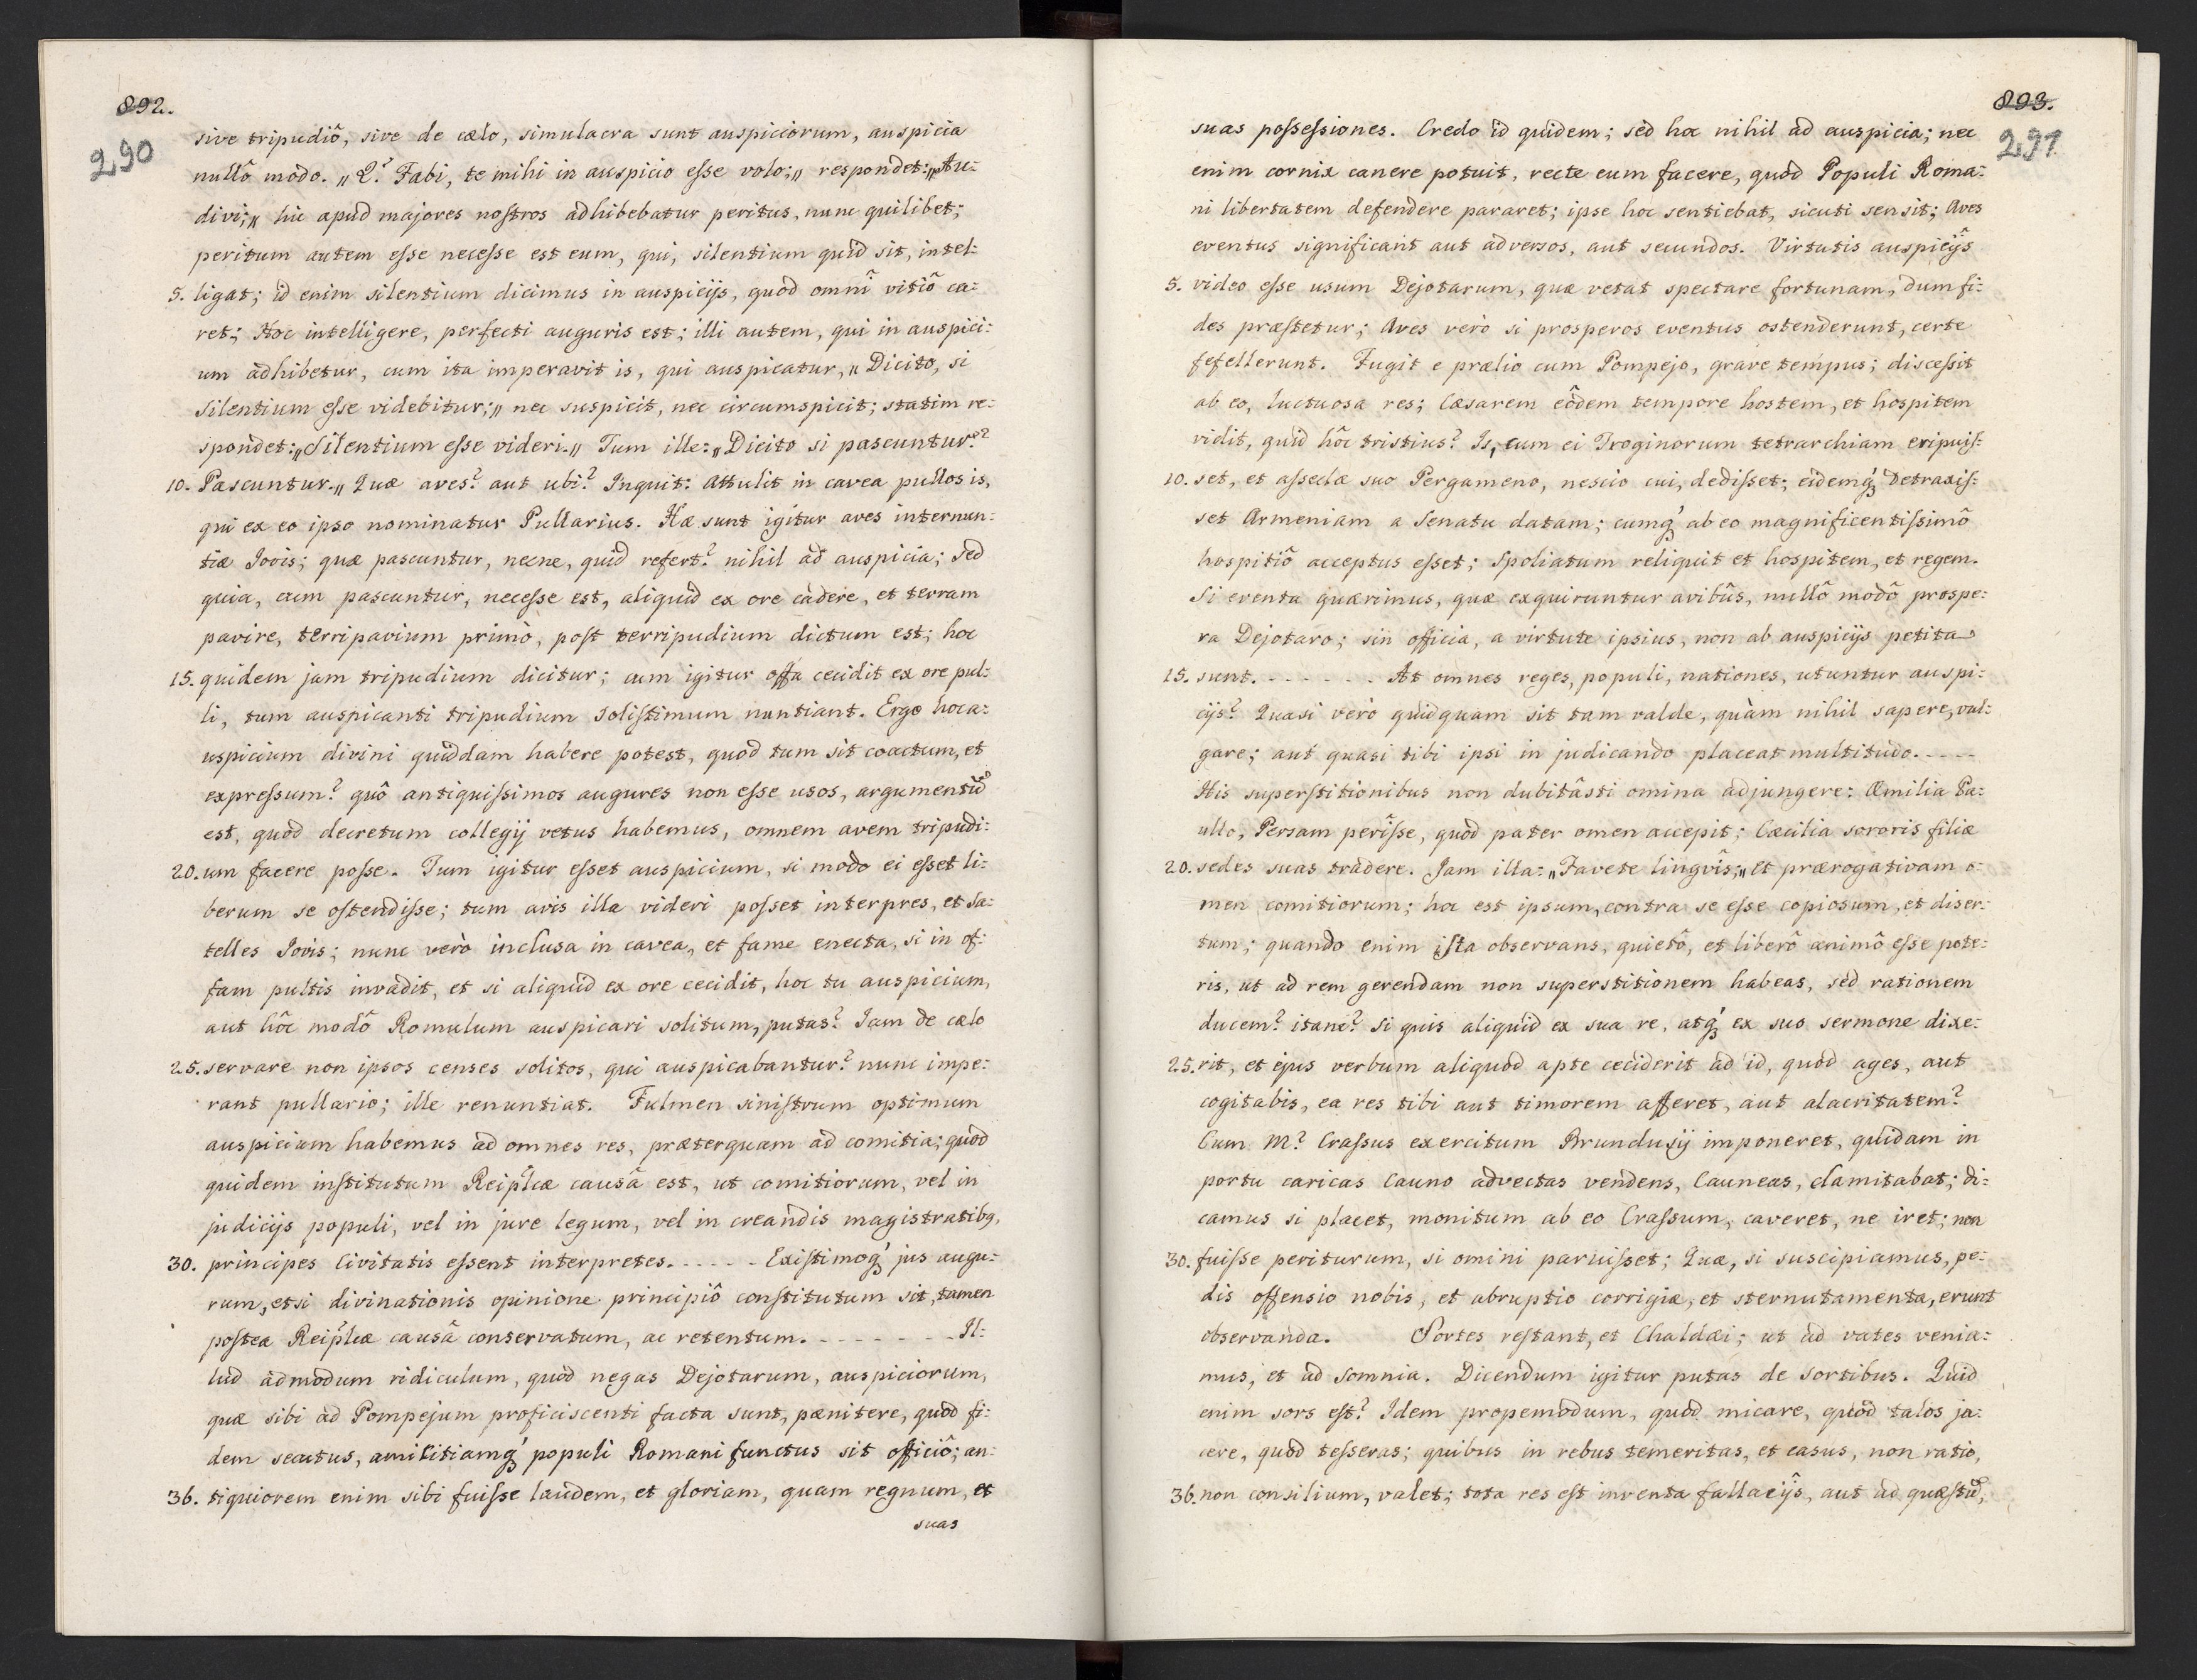 892.
290
sive tripudiô, sive de cælo, simulacra sunt auspiciorum, auspicia
nullô modo. „Q? Fabi, te mihi in auspicio esse volo;„ respondet: „Au:
divi;„ hic apud majores nostros adhibebatur peritus, nunc quilibet;
peritum autem esse necesse est eum, qui, silentium quid sit, intel:
5. ligat; id enim silentium dicimus in auspicijs, quod omnî vitiô ca:
ret; Hoc intelligere, perfecti auguris est; illi autem, qui in auspici:
um adhibetur, cum ita imperavit is, qui auspicatur, „Dicito, si
silentium esse videbitur;„ nec suspicit, nec circumspicit; statim re:
spondet: „Silentium esse videri.„ Tum ille: „Dicito si pascuntur?
10. Pascuntur.„ Quæ aves? aut ubi? Inquit: Attulit in cavea pullos is,
qui ex eo ipso nominatur Pullarius. Hæ sunt igitur aves internun:
tiæ Jovis; quæ pascuntur, necne, quid refert? nihil ad auspicia; sed
quia, cum pascuntur, necesse est, aliquid ex ore cadere, et terram
pavire, terripavium primò, post terripudium dictum est; hoc
15. quidem jam tripudium dicitur; cum igitur offa cecidit ex ore pul:
li, tum auspicanti tripudium solistimum nuntiant. Ergo hoc a:
uspicium divini quiddam habere potest, quod tum sit coactum, et
expressum? quô antiquissimos augures non esse usos, argumentũ
est, quod decretum collegij vetus habemus, omnem avem tripudi:
20. um facere posse. Tum igitur esset auspicium, si modo ei esset li:
berum se ostendisse; tum avis illa videri posset interpres, et sa:
telles Jovis; nunc verò inclusa in cavea, et fame enecta, si in of:
fam pultis invadit, et si aliquid ex ore cecidit, hoc tu auspicium,
aut hôc modô Romulum auspicari solitum, putas? Jam de cælo
25. servare non ipsos censes solitos, qui auspicabantur? nunc impe:
rant pullario; ille renuntiat. Fulmen sinistrum optimum
auspicium habemus ad omnes res, præterquam ad comitia; quod
quidem institutum Reiplcæ causâ est, ut comitiorum, vel in
judicijs populi, vel in jure legum, vel in creandis magistratibq,
30. principes Civitatis essent interpretes. - - - - - Existimoq́ jus augu:
rum, etsi divinationis opinione principiô constitutum sit, tamen
postea Reiplcæ causâ conservatum, ac retentum. - - - - - - - Il:
lud admodum ridiculum, quod negas Dejotarum, auspiciorum,
quæ sibi ad Pompejum proficiscenti facta sunt, pænitere, quod fi:
dem secutus, amicitiamq́ populi Romani functus sit officiô; an:
36. tiquiorem enim sibi fuisse laudem, et gloriam, quam regnum, et
suas
893.
291
suas possessiones. Credo id quidem; sed hoc nihil ad auspicia; nec
enim cornix canere potuit, recte eum facere, quod Populi Roma:
ni libertatem defendere pararet; ipse hoc sentiebat, sicuti sensit; Aves
eventus significant aut adversos, aut secundos. Virtutis auspicijs
5. video esse usum Dejotarum, quæ vetat spectare fortunam, dum fi:
des præstetur; Aves verò si prosperos eventus ostenderunt, certe
fefellerunt. Fugit e prælio cum Pompejo, grave tempus; discessit
ab eo, luctuosa res; Cæsarem eôdem tempore hostem, et hospitem
vidit, quid hôc tristius? Is, cum ei Troginorum tetrarchiam eripuis:
10. set, et asseclæ suo Pergameno, nescio cui, dedisset; eidemq́ detraxis:
set Armeniam a Senatu datam; cumq́ ab eo magnificentissimô
hospitiô acceptus esset; Spoliatum reliquit et hospitem, et regem.
Si eventa quærimus, quæ exquiruntur avibûs, nullô modô prospe:
ra Dejotaro; sin officia, a virtute ipsius, non ab auspicijs petita
15. sunt. - - - - - - At omnes reges, populi, nationes, utuntur auspi:
cijs? Quasi verò quidquam sit tam valde, quàm nihil sapere, vul:
gare; aut quasi tibi ipsi in judicando placeat multitudo. - - - -
His superstitionibus non dubitâsti omina adjungere: Æmilia Pa:
ullo, Persam perîsse, quod pater omen accepit; Cæcilia sororis filiæ
20. sedes suas tradere. Jam illa: „Favete lingvîs;„ et prærogativam o:
men comitiorum; hoc est ipsum, contra se esse copiosum, et diser:
tum; quando enim ista observans, quietô, et liberô animô esse pote:
ris, ut ad rem gerendam non superstitionem habeas, sed rationem
ducem? itane? Si quis aliquid ex sua re, atq́ ex suo sermone dixe:
25. rit, et ejus verbum aliquod apte ceciderit ad id, quod ages, aut
cogitabis, ea res tibi aut timorem afferet, aut alacritatem?
Cum M? Crassus exercitum Brundusij imponeret, quidam in
portu caricas Cauno advectas vendens, Cauneas, clamitabat; di:
camus si placet, monitum ab eo Crassum, caveret, ne iret; non
30. fuisse periturum, si omini paruisset; Quæ, si suscipiamus, pe:
dis offensio nobis, et abruptio corrigiæ, et sternutamenta, erunt
observanda. Sortes restant, et Chaldæi; ut ad vates venia:
mus, et ad somnia. Dicendum igitur putas de sortibus. Quid
enim sors est? Idem propemodum, quod micare, quod talos ja:
cere, quod tesseras; quibus in rebus temeritas, et casus, non ratio,
36. non consilium, valet; tota res est inventa fallacijs, aut ad quæstũ,